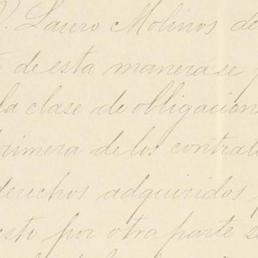 D. Lauro Molinos de
de esta manera se
la clase de obligacion
primera de los contrat
derechos adquiridos
esto por otra parte s